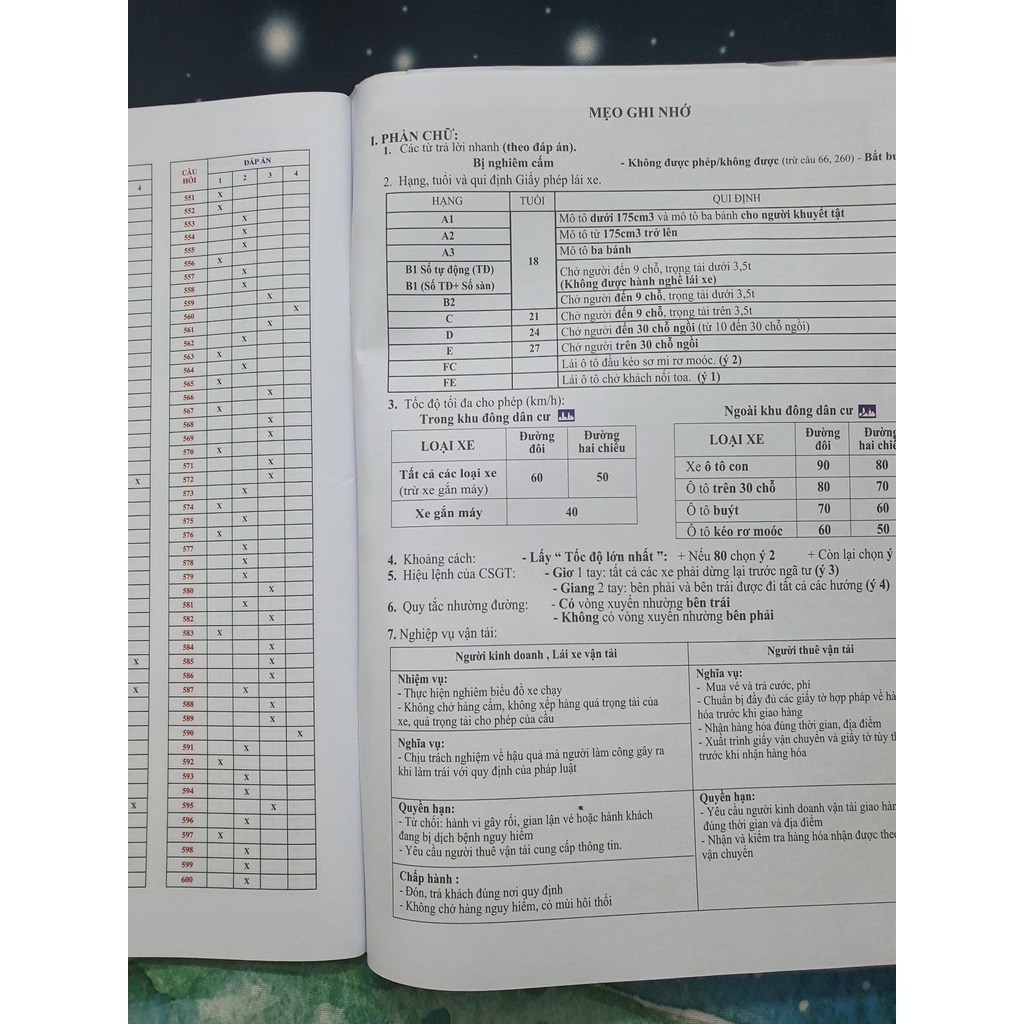 4
X
X
X
X
ĐÁP ÁN
CÂU HỎI
1 2 3 4
551 X
552 X
553 X
554 X
555 X
556 X
557 X
558 X
559 X
560 X
561 X
562 X
563 X
564 X
565 X
566 X
567 X
568 X
569 X
570 X
571 X
572 X
573 X
574 X
575 X
576 X
577 X
578 X
579 X
580 X
581 X
582 X
583 X
584 X
585 X
586 X
587 X
588 X
589 X
590 X
591 X
592 X
593 X
594 X
595 X
596 X
597 X
598 X
599 X
600 X
MẸO GHI NHỚ
I. PHẦN CHỮ:
1. Các từ trả lời nhanh (theo đáp án).
Bị nghiêm cấm - Không được phép/không được (trừ câu 66, 260) - Bắt
2. Hạng, tuổi và qui định Giấy phép lái xe.
HẠNG TUỔI QUI ĐỊNH
A1 Mô tô dưới 175cm3 và mô tô ba bánh cho người khuyết tật
A2 Mô tô từ 175cm3 trở lên
A3 Mô tô ba bánh
18
B1 Số tự động (TĐ) Chở người đến 9 chỗ, trọng tải dưới 3,5t
B1 (Số TĐ+ Số sàn) (Không được hành nghề lái xe)
B2 Chở người đến 9 chỗ, trọng tải dưới 3,5t
C 21 Chở người đến 9 chỗ, trọng tải trên 3,5t
D 24 Chở người đến 30 chỗ ngồi (từ 10 đến 30 chỗ ngồi)
E 27 Chở người trên 30 chỗ ngồi
FC Lái ô tô đầu kéo sơ mi rơ moóc. (ý 2)
FE Lái ô tô chở khách nối toa. (ý 1)
3. Tốc độ tối đa cho phép (km/h):
Trong khu đông dân cư
LOẠI XE Đường đôi Đường hai chiều
Tất cả các loại xe (trừ xe gắn máy) 60 50
Xe gắn máy 40
Ngoài khu đông dân cư
LOẠI XE Đường đôi Đường hai
Xe ô tô con 90 80
Ô tô trên 30 chỗ 80 70
Ô tô buýt 70 60
Ô tô kéo rơ moóc 60 50
4. Khoảng cách: - Lấy “ Tốc độ lớn nhất ”: + Nếu 80 chọn ý 2 + Còn lại chọn ý
5. Hiệu lệnh của CSGT: - Giơ 1 tay: tất cả các xe phải dừng lại trước ngã tư (ý 3)
- Giang 2 tay: bên phải và bên trái được đi tất cả các hướng (ý 4)
6. Quy tắc nhường đường: - Có vòng xuyến nhường bên trái
- Không có vòng xuyến nhường bên phải
7. Nghiệp vụ vận tải:
Người kinh doanh , Lái xe vận tải
Nhiệm vụ:
- Thực hiện nghiêm biểu đồ xe chạy
- Không chở hàng cấm, không xếp hàng quá trọng tải của
xe, quá trọng tải cho phép của cầu
Nghĩa vụ:
- Chịu trách nghiệm về hậu quả mà người làm công gây ra
khi làm trái với quy định của pháp luật
Quyền hạn:
- Từ chối: hành vi gây rối, gian lận vé hoặc hành khách
đang bị dịch bệnh nguy hiểm
- Yêu cầu người thuê vận tải cung cấp thông tin.
Chấp hành :
- Đón, trả khách đúng nơi quy định
- Không chở hàng nguy hiểm, có mùi hôi thối
Người thuê vận tải
Nghĩa vụ:
- Mua vé và trả cước, phí
- Chuẩn bị đầy đủ các giấy tờ hợp pháp về
hóa trước khi giao hàng
- Nhận hàng hóa đúng thời gian, địa điểm
- Xuất trình giấy vận chuyển và giấy tờ tùy
trước khi nhận hàng hóa
Quyền hạn:
- Yêu cầu người kinh doanh vận tải giao
đúng thời gian và địa điểm
- Nhận và kiểm tra hàng hóa nhận được
vận chuyển